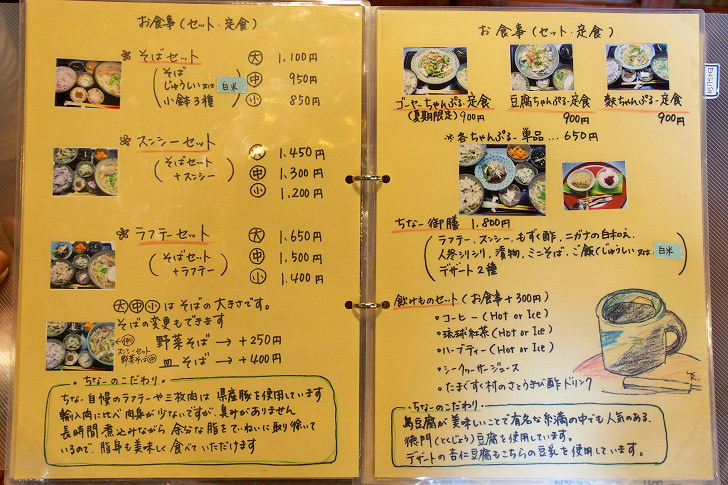 お食事(セット・定食)
そばセット
大 1,100円
中 950円
小 850円
(そば
じゅうしい 又は 白米
小鉢3種)
スンシーセット
(そばセット
+スンシー)
大 1,450円
中 1,300円
小 1,200円
ラフテーセット
(そばセット
+ラフテー)
大 1,650円
中 1,500円
小 1,400円
大中小はそばの大きさです。
そばの変更もできます
野菜そば → +250円
スンシーセット
野菜そば
皿そば → +400円
ちなーのこだわり
ちなー自慢のラフテーや三枚肉は県産豚を使用しています
輸入肉に比べ肉臭が少ないですが、臭みがありません
長時間煮込みながら余分な脂をていねいに取り除いて
いるので、脂身も美味しく食べていただけます
お食事(セット・定食)
ENGLISH
ゴーヤーちゃんぷるー定食
(夏期限定)900円
豆腐ちゃんぷるー定食
900円
麩ちゃんぷるー定食
900円
※各ちゃんぷるー単品…650円
ちなー御膳 1,800円
(ラフテー、スンシー、もずく酢、ニガナの白和え、
人参シリシリ、漬物、ミニそば、ご飯(じゅうしい 又は 白米
デザート2種)
飲みものセット(お食事+300円)
・コーヒー(Hot or Ice)
・琉球紅茶(Hot or Ice)
・ハーブティー(Hot or Ice)
・シークヮーサージュース
・たまぐすく村のさとうきび酢ドリンク
ちなーのこだわり
島豆腐が美味しいことで有名な糸満の中でも人気のある、
徳門(とくじょう)豆腐を使用しています。
デザートの杏仁豆腐もこちらの豆乳を使用しています。